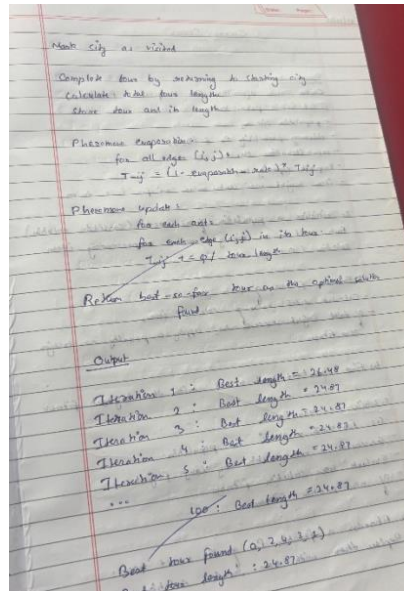 Mark city as visited
Complete tour by returning to starting city
Calculate total tour length
Store tour and its length
Pheromone evaporation :
for all edges (i,j) :
T_ij = (1 - evaporation_rate) * T_ij
Pheromone update :
for each ant :
for each edge (i,j) in its tour
T_ij + = Q / tour_length
Return best-so-far tour as the optimal solution
found
Output
Iteration 1 : Best length = 26.48
Iteration 2 : Best length = 24.87
Iteration 3 : Best length = 24.87
Iteration 4 : Best length = 24.87
Iteration 5 : Best length = 24.87
...
100 : Best length = 24.87
Best tour found (0, 2, 4, 3, 1)
tour length : 24.87